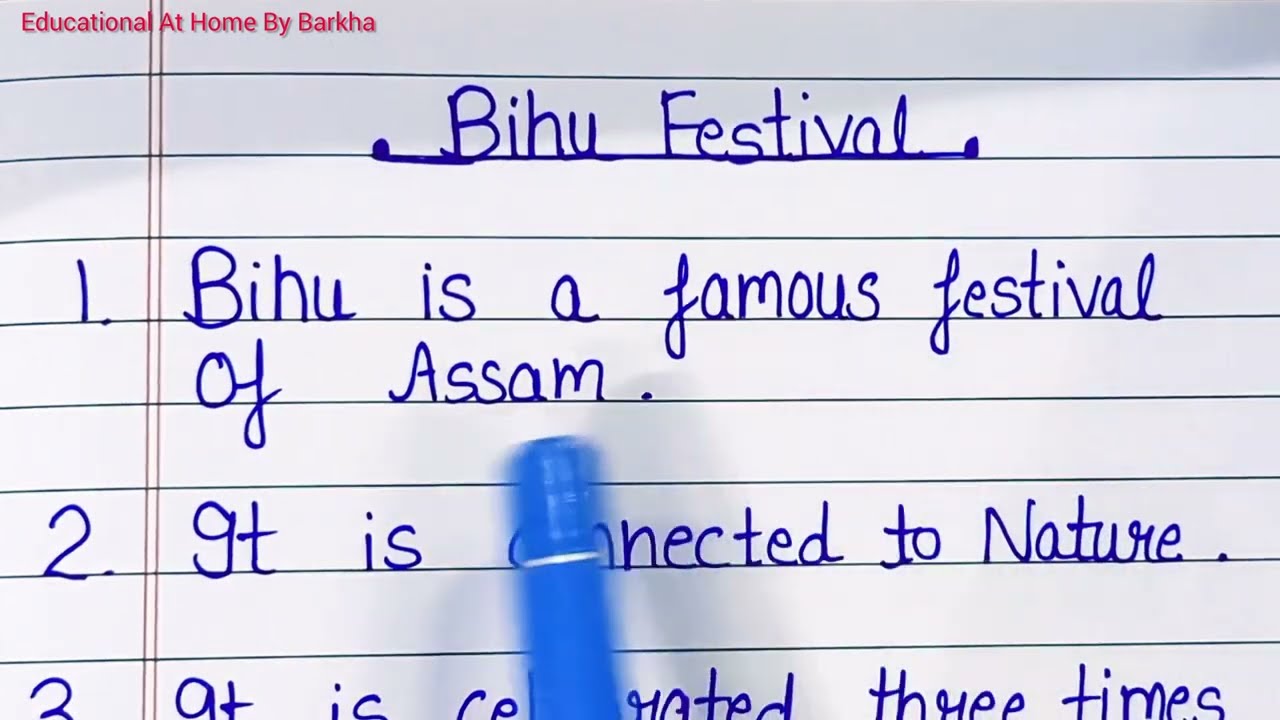 Educational At Home By Barkha
Bihu Festival
1. Bihu is a famous festival
Of Assam.
2. It is connected to Nature.
3 It is celebrated three times